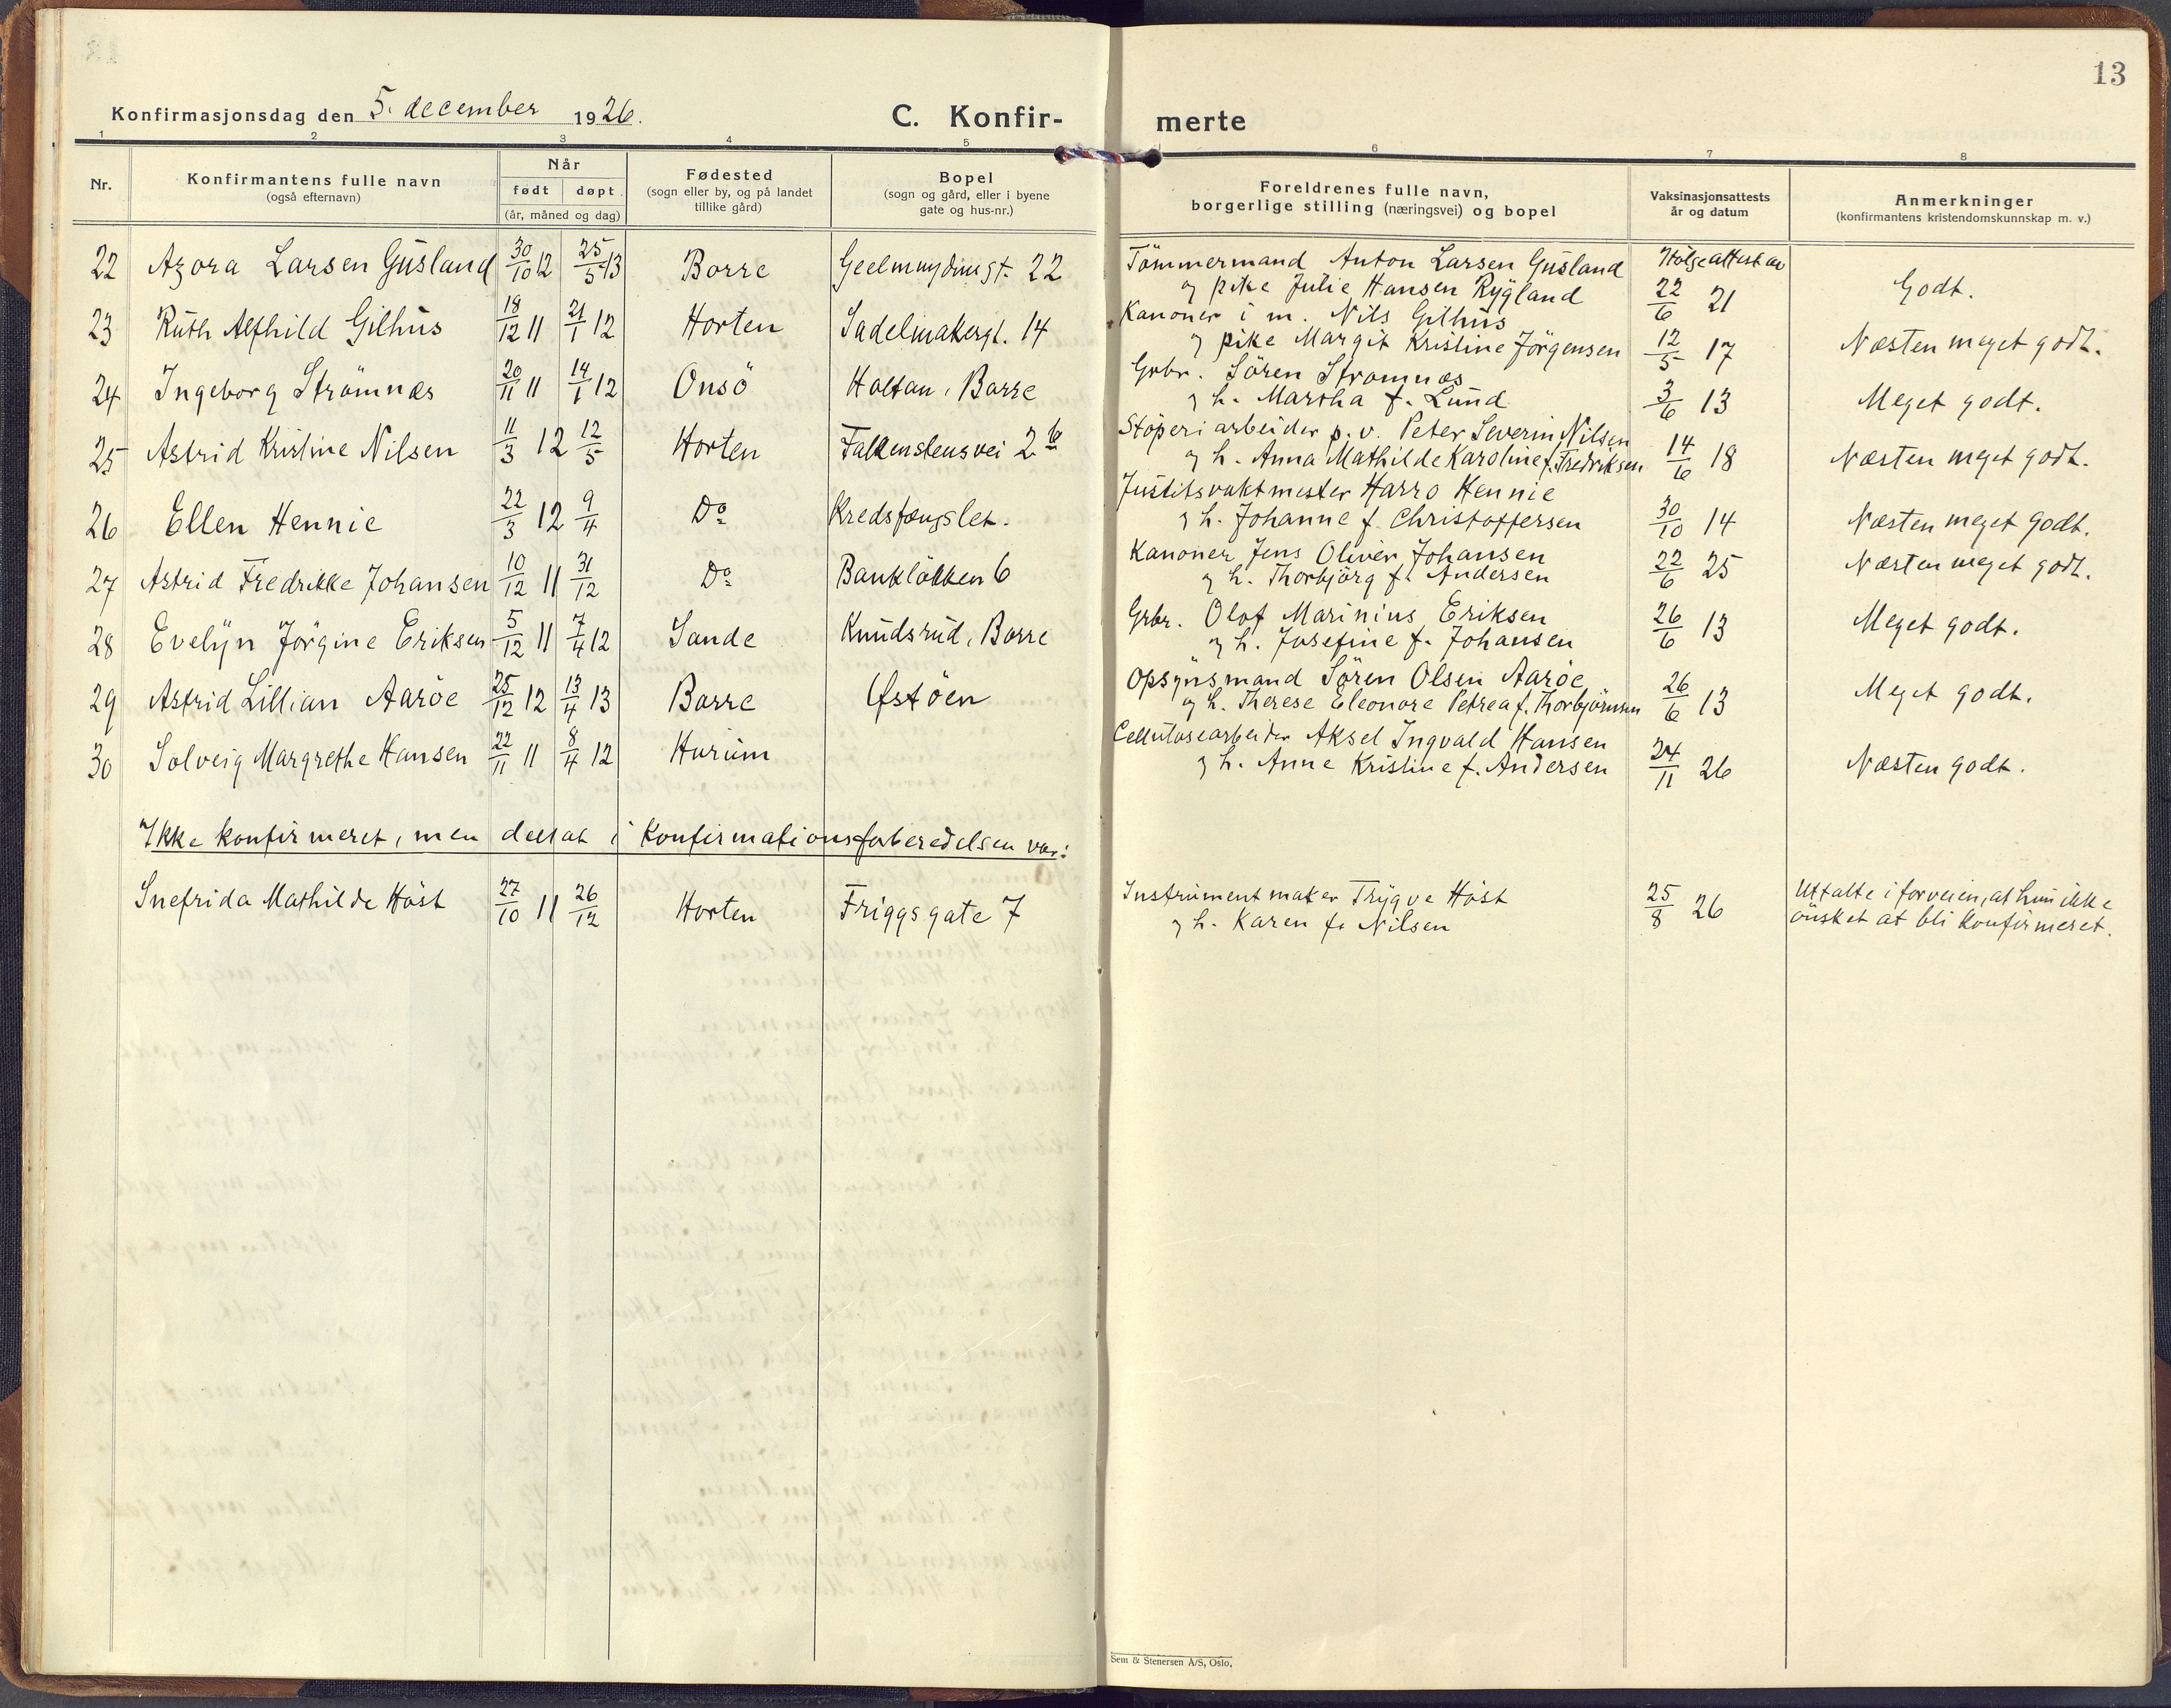 13
Konfirmasjonsdag den 5. december 1926.
C. Konfir- merte
1 2 3 4 5 6 7 8
Nr.
Konfirmantens fulle navn
(også efternavn)
Når
født døpt
(år, måned og dag)
Fødested
(sogn eller by, og på landet
tillike gård)
Bopel
(sogn og gård, eller i byene
gate og hus-nr.)
Foreldrenes fulle navn,
borgerlige stilling (næringsvei) og bopel
Vaksinasjonsattests
år og datum
Anmerkninger
(konfirmantens kristendomskunnskap m. v.)
22 Azora Larsen Gusland 30/10 12 25/5 13 Borre Geelmuydensgt. 22 Tömmermand Anton Larsen Gusland Ifölge attest av
og pike Julie Hansen Rygland 22/6 21 Godt.
23 Ruth Alfhild Gilhus 18/12 11 21/1 12 Horten Sadelmakergt. 14 Kanoner i m. Nils Gilhus
og pike Margit Kristine Jörgensen 12/5 17 Næsten meget godt.
24 Ingeborg Strömnæs 20/11 11 14/1 12 Onsö Holtan, Borre Grbr. Sören Strömnæs
og h. Martha f. Lund 3/6 13 Meget godt.
25 Astrid Kristine Nilsen 11/3 12 12/5 Horten Falkenstensvei 2 b Stöperiarbeider p. v. Peter Severin Nilsen
og h. Anna Mathilde Karoline f. Fredriksen 14/6 18 Næsten meget godt.
26 Ellen Hennie 22/3 12 9/4 Do Kredsfængslet. Justitsvaktmester Harro Hennie
og h. Johanne f. Christoffersen 30/10 14 Næsten meget godt.
27 Astrid Fredrikke Johansen 10/12 11 31/12 Do Banklökken 6 Kanoner Jens Oliver Johansen
og h. Thorbjörg f. Andersen 22/6 25 Næsten meget godt.
28 Evelyn Jörgine Eriksen 5/12 11 7/4 12 Sande Knudsrud, Borre Grbr. Olof Marinius Eriksen
og h. Josefine f. Johansen 26/6 13 Meget godt.
29 Astrid Lillian Aaröe 25/12 12 13/4 13 Borre Östöen Opsynsmand Sören Olsen Aaröe
og h. Therese Eleonore Petrea f. Thorbjörnsen 26/6 13 Meget godt.
30 Solveig Margrethe Hansen 22/11 11 8/4 12 Hurum Cellulosearbeider Aksel Ingvald Hansen
og h. Anne Kristine f. Andersen 24/11 26 Næsten godt.
Ikke konfirmeret, men deltat i konfirmationsforberedelsen var:
Snefrida Mathilde Höst 27/10 11 26/12 Horten Friggs gate 7 Instrumentmaker Trygve Höst
og h. Karen f. Nilsen 25/8 26 Uttalte i forveien, at hun ikke
önsket at bli konfirmeret.
Sem & Stenersen A/S, Oslo.